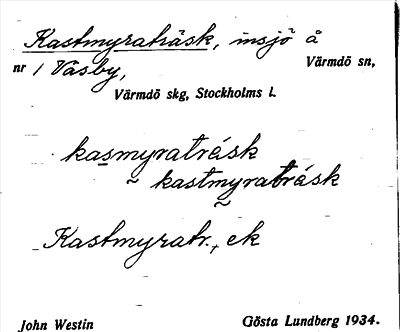 Kastmyraträsk, insjö å
nr 1 Väsby, Värmdö sn,
Värmdö skg, Stockholms l.
kasmyraträsk
~ kastmyraträsk
~
Kastmyratr., ek
John Westin Gösta Lundberg 1934.